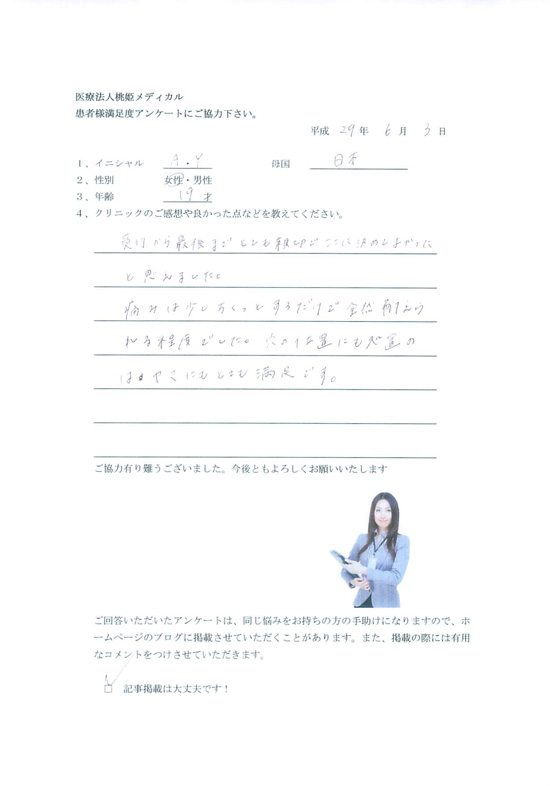 医療法人桃姫メディカル
患者様満足度アンケートにご協力下さい。
平成 29 年 6 月 3 日
1、イニシャル A・Y 母国 日本
2、性別 女性・男性
3、年齢 19 才
4、クリニックのご感想や良かった点などを教えてください。
受付から最後までとても親切でここに決めてよかった
と思いました。
痛みは少しちくっとするだけで全然
程度でした。穴の位置にも処置の
はやさにもとても満足です。
ご協力有り難うございました。今後ともよろしくお願いいたします
ご回答いただいたアンケートは、同じ悩みをお持ちの方の手助けになりますので、ホ
ームページのブログに掲載させていただくことがあります。また、掲載の際には有用
なコメントをつけさせていただきます。
記事掲載は大丈夫です！